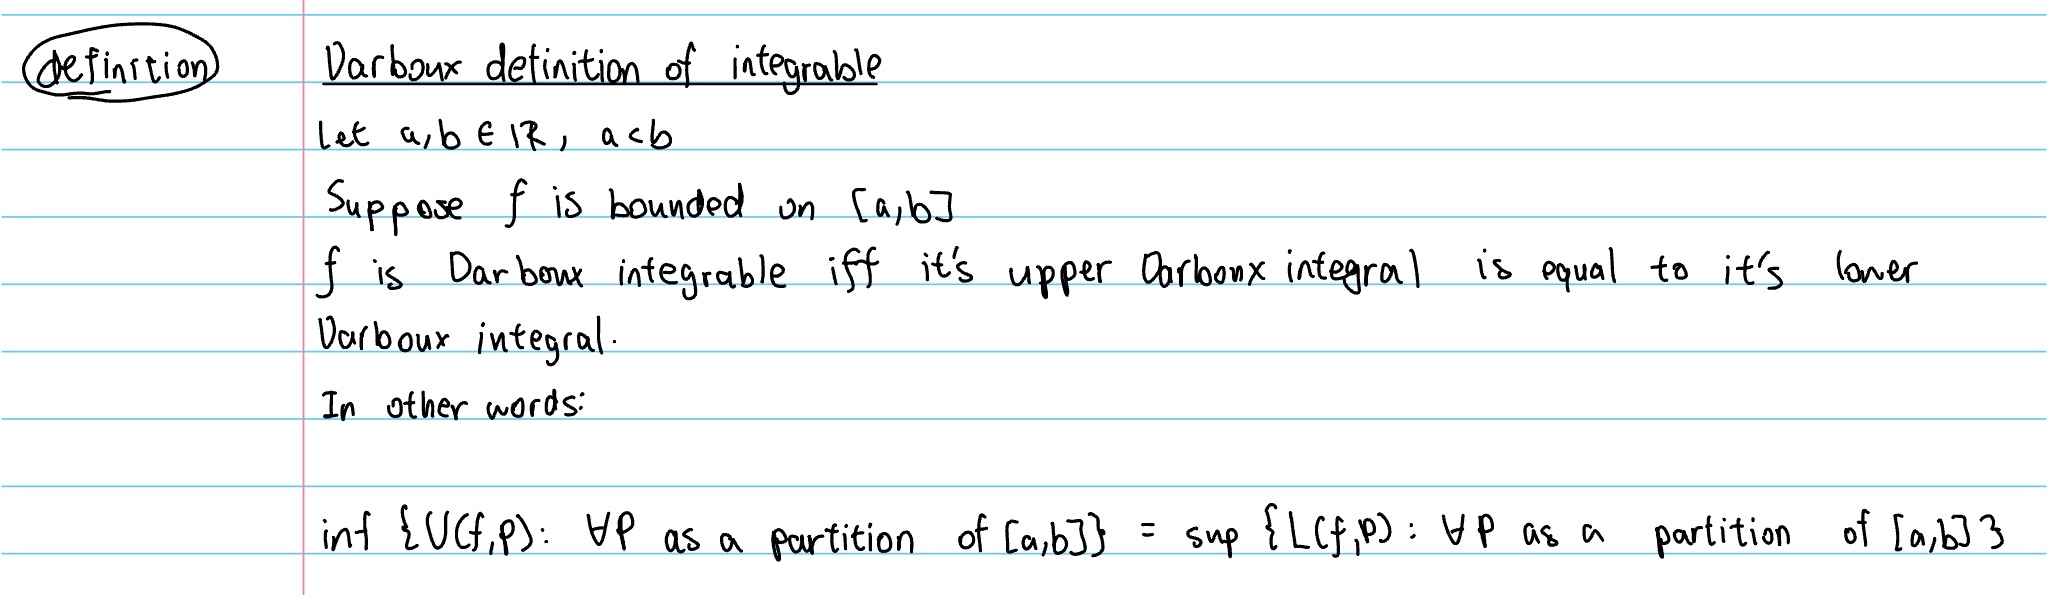 definition
Darboux definition of integrable
Let a,b ∈ ℝ, a<b
Suppose f is bounded on [a,b]
f is Darboux integrable iff it's upper Darboux integral is equal to it's lower
Darboux integral.
In other words:
inf {U(f,P): ∀P as a partition of [a,b]} = sup {L(f,P): ∀P as a partition of [a,b]}